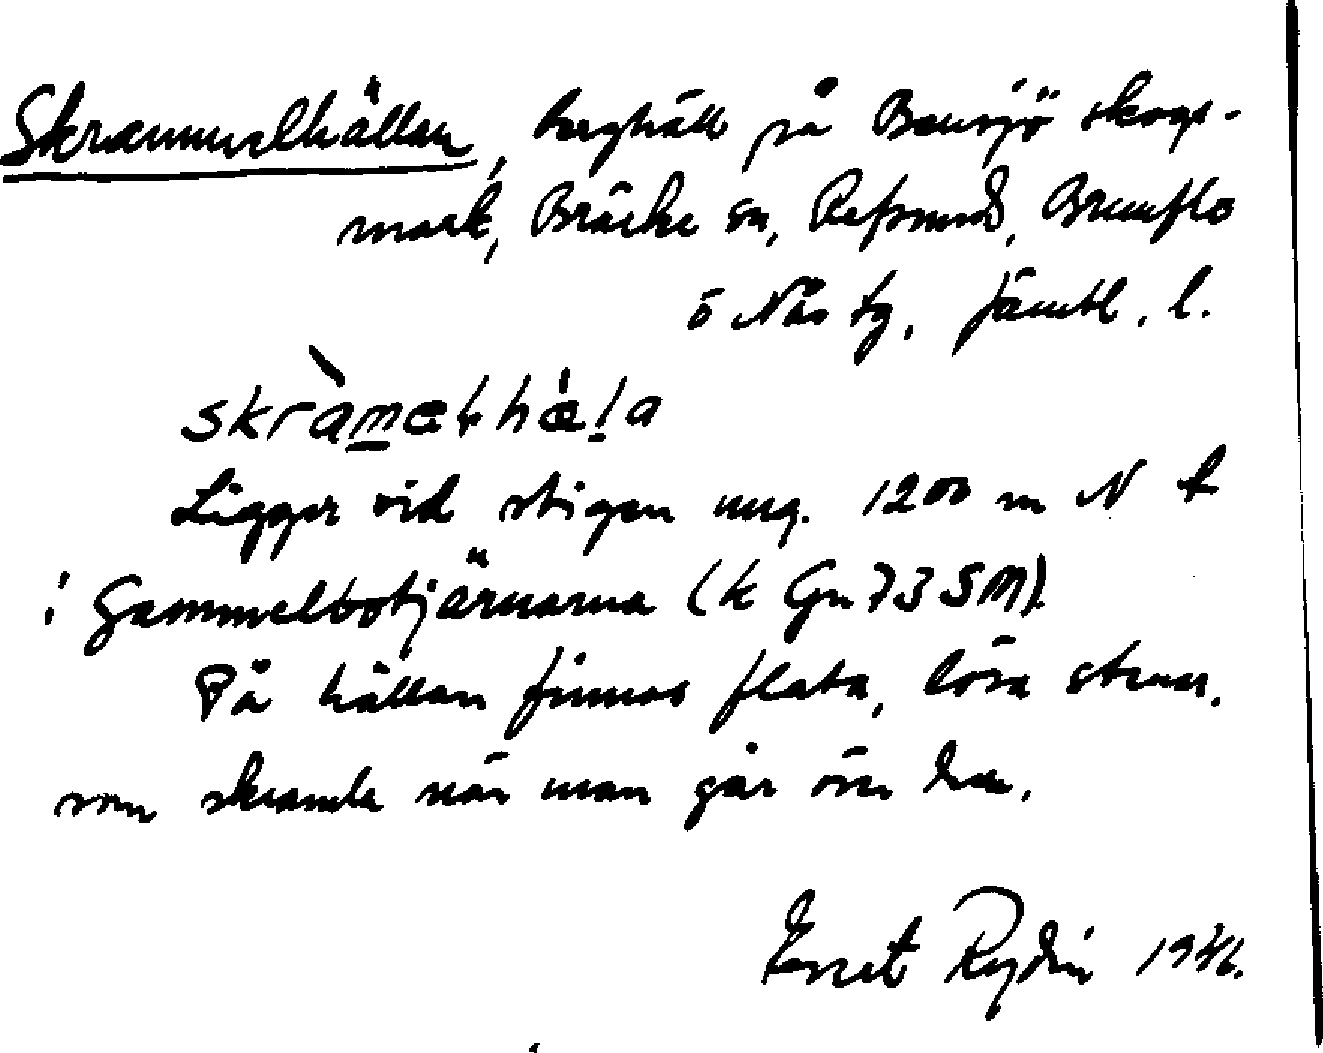 Skrammelhällan, berghäll på Bensjö skogs-
mark, Bräcke sn, Refsunds, Brunflo
o Näs tg. Jämtl. l.
skràmæłhæla
Ligger vid stigen ung. 1200 m N t
i Gammelbotjärnarna (k Gn 73 SM).
På hällan finnas flata, lösa stenar,
som skramla när man går över den.
Ernst Rydin 1946.